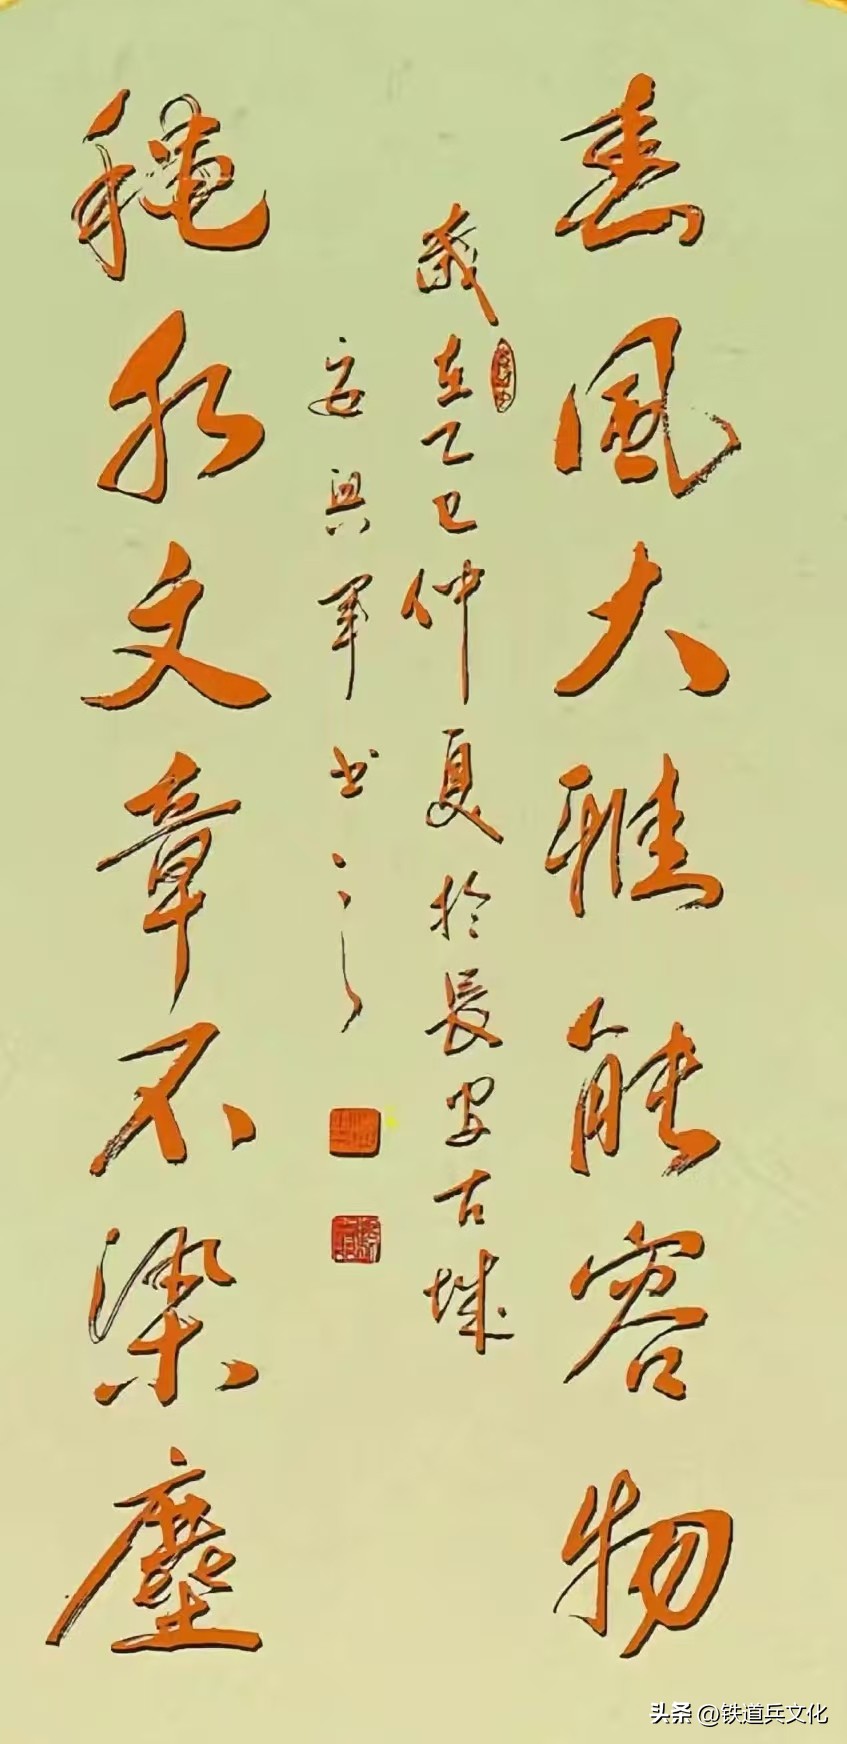 春風大雅能容物
歲在乙巳仲夏於長安古城
安興軍书之
穐水文章不染塵
头条 @铁道兵文化